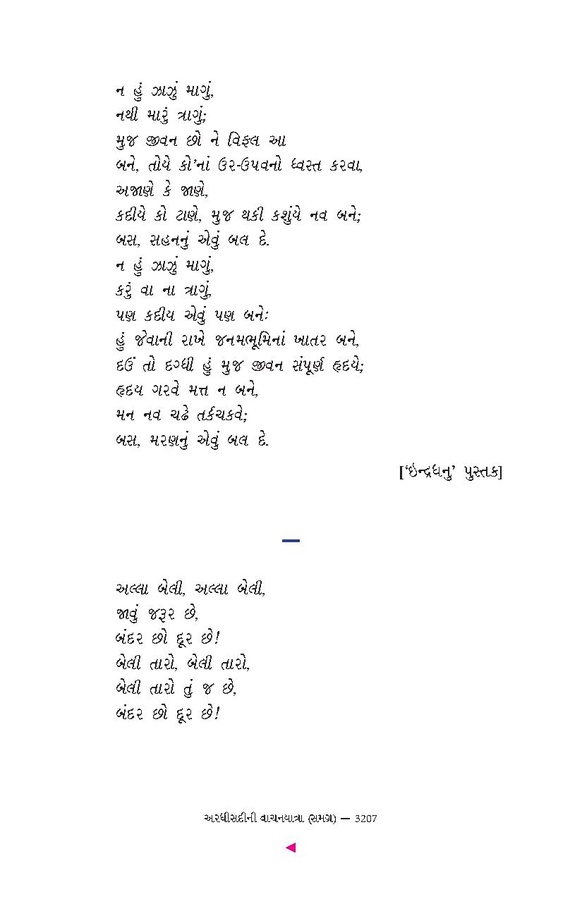 ન હું ઝાઝું માગું,
નથી મારું ત્રાગું;
મુજ જીવન છો ને વિફલ આ
બને, તોયે કો'નાં ઉર-ઉપવનો ધ્વસ્ત કરવા,
અજાણે કે જાણે,
કદીયે કો ટાણે, મુજ થકી કશુંયે નવ બને;
બસ, સહનનું એવું બલ દે.
ન હું ઝાઝું માગું,
કરું વા ના ત્રાગું,
પણ કદીય એવું પણ બનેઃ
હું જેવાની રાખે જનમભૂમિનાં ખાતર બને,
દઉં તો દગ્ધી હું મુજ જીવન સંપૂર્ણ હૃદયે;
હૃદય ગરવે મત્ત ન બને,
મન નવ ચઢે તર્કચકવે;
બસ, મરણનું એવું બલ દે.
['ઇન્દ્રધનુ' પુસ્તક]
અલ્લા બેલી, અલ્લા બેલી,
જાવું જરૂર છે,
બંદર છો દૂર છે!
બેલી તારો, બેલી તારો,
બેલી તારો તું જ છે,
બંદર છો દૂર છે!
અરધીસદીની વાચનયાત્રા (સમગ્ર) — 3207